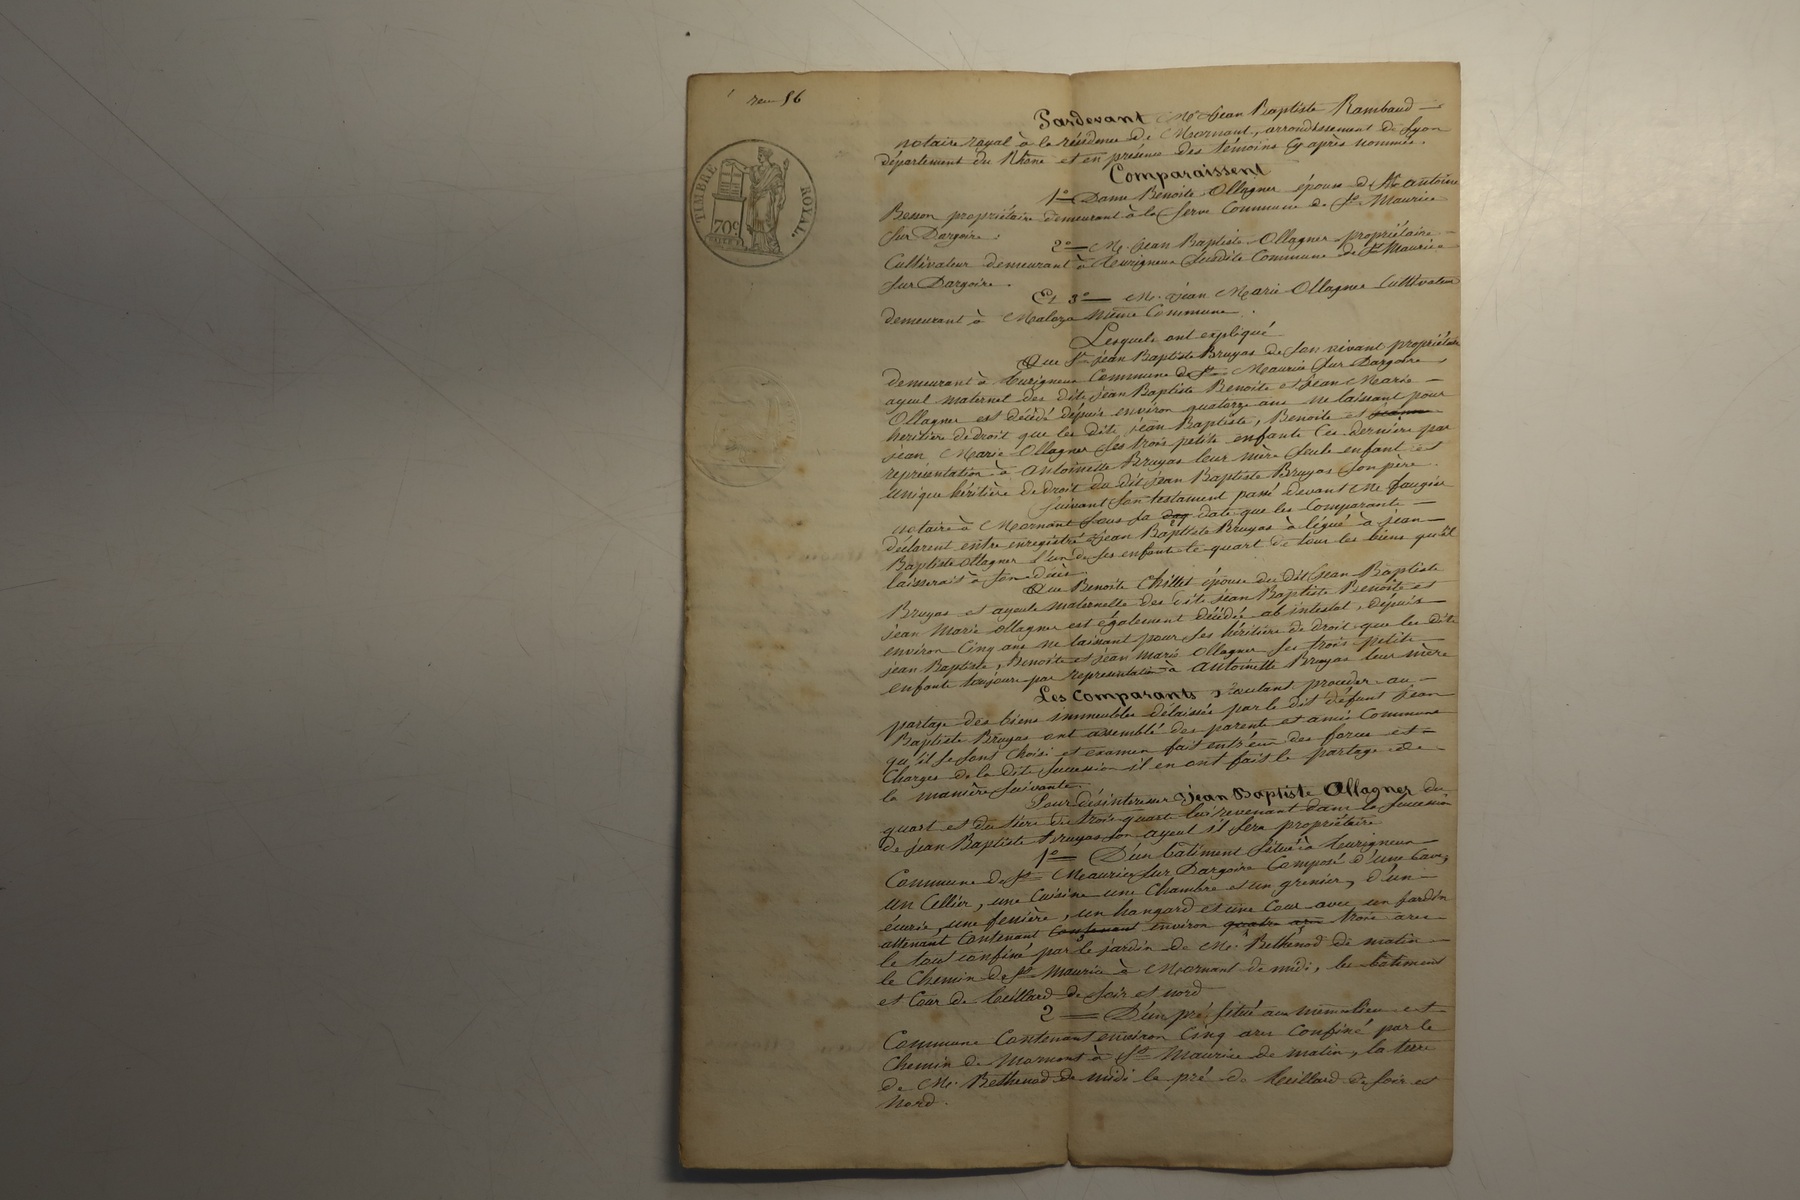 ren 56
TIMBRE ROYAL.
70c
Pardevant Me Jean Baptiste Rambaud
notaire royal à la résidence de Mornant, arrondissement de Lyon
département du Rhône et en présence des témoins cy après nommés.
Comparaissent
1o Dame Benoite Ollagner épouse de Mr antoine
Besson propriétaire demeurant à la Serve Commune de St Maurice
Sur Dargoire.
2o M. Jean Baptiste Ollagner propriétaire
Cultivateur demeurant à Curigneux Susdite Commune de St Maurice
Sur Dargoire.
Et 3o M. Jean Marie Ollagner Cultivateur
demeurant à même Commune.
Lesquels ont expliqué
Que Sr jean Baptiste Bruyas de son vivant propriétaire
demeurant à Curigneux Commune de St Maurice Sur Dargoire
ayeul maternel des dits jean Baptiste Benoite et Jean Marie
Ollagner est décédé depuis environ quatorze ans ne laissant pour
heritiers de droit que les dits jean Baptiste, Benoite et
jean Marie Ollagner Ses trois petits enfants Ces derniers par
représentation à antoinette Bruyas leur mère Seule enfant et
unique héritière de droit du dit jean Baptiste Bruyas Son père.
Suivant Son testament passé devant Me Faugier
notaire à Mornant Sous Sa date que les Comparants
déclarent entre enregistré Jean Baptiste Bruyas à légué à jean
Baptiste Ollagner l'un de Ses enfants le quart de tous les biens qu'il
laisserait à Son décès.
Que Benoite Chillet épouse du dit Jean Baptiste
Bruyas et ayeule maternelle des dits jean Baptiste Benoite et
jean Marie Ollagner est également décédée ab intestat, depuis
environ Cinq ans ne laissant pour Ses héritiers de droit que les dits
jean Baptiste, Benoite et jean Marie Ollagner Ses trois petits
enfants toujours par représentation à antoinette Bruyas leur mère
Les Comparants, voulant procéder au
partage des biens immeubles délaissés par le dit défunt Jean
Baptiste Bruyas ont assemblé des parents et amis Communs
qu'il se sont Choisi et examen fait entr'eux des forces et
Charges de la dite Succession il en ont fait le partage de
la manière Suivante.
Pour désintéresser Jean Baptiste Ollagner du
quart et du tiers de trois quart lui revenant dans la Succession
de jean Baptiste Bruyas Son ayeul il Sera propriétaire
1o D'un bâtiment Situé à Curigneux
Commune de St Maurice Sur Dargoire Composé d'une Cave,
un Cellier, une Cuisine une Chambre et un grenier, d'un
écurie, une fenière, un hangard et une Cour avec un Jardin
attenant Contenant Contenant environ quatre ares trois ares
le tout confiné par le jardin de Mr Bethenod de matin
le Chemin de St Maurice à Mornant de midi, les bâtiment
et Cour de Cuillard de Soir et nord
2 D'un pré Situé au même lieu et
Commune Contenant environ Cinq ares Confiné par le
Chemin de Mornant à St Maurice de matin, la terre
de Mr Bethenod de midi le pré de Cuillard de Soir et
Nord.